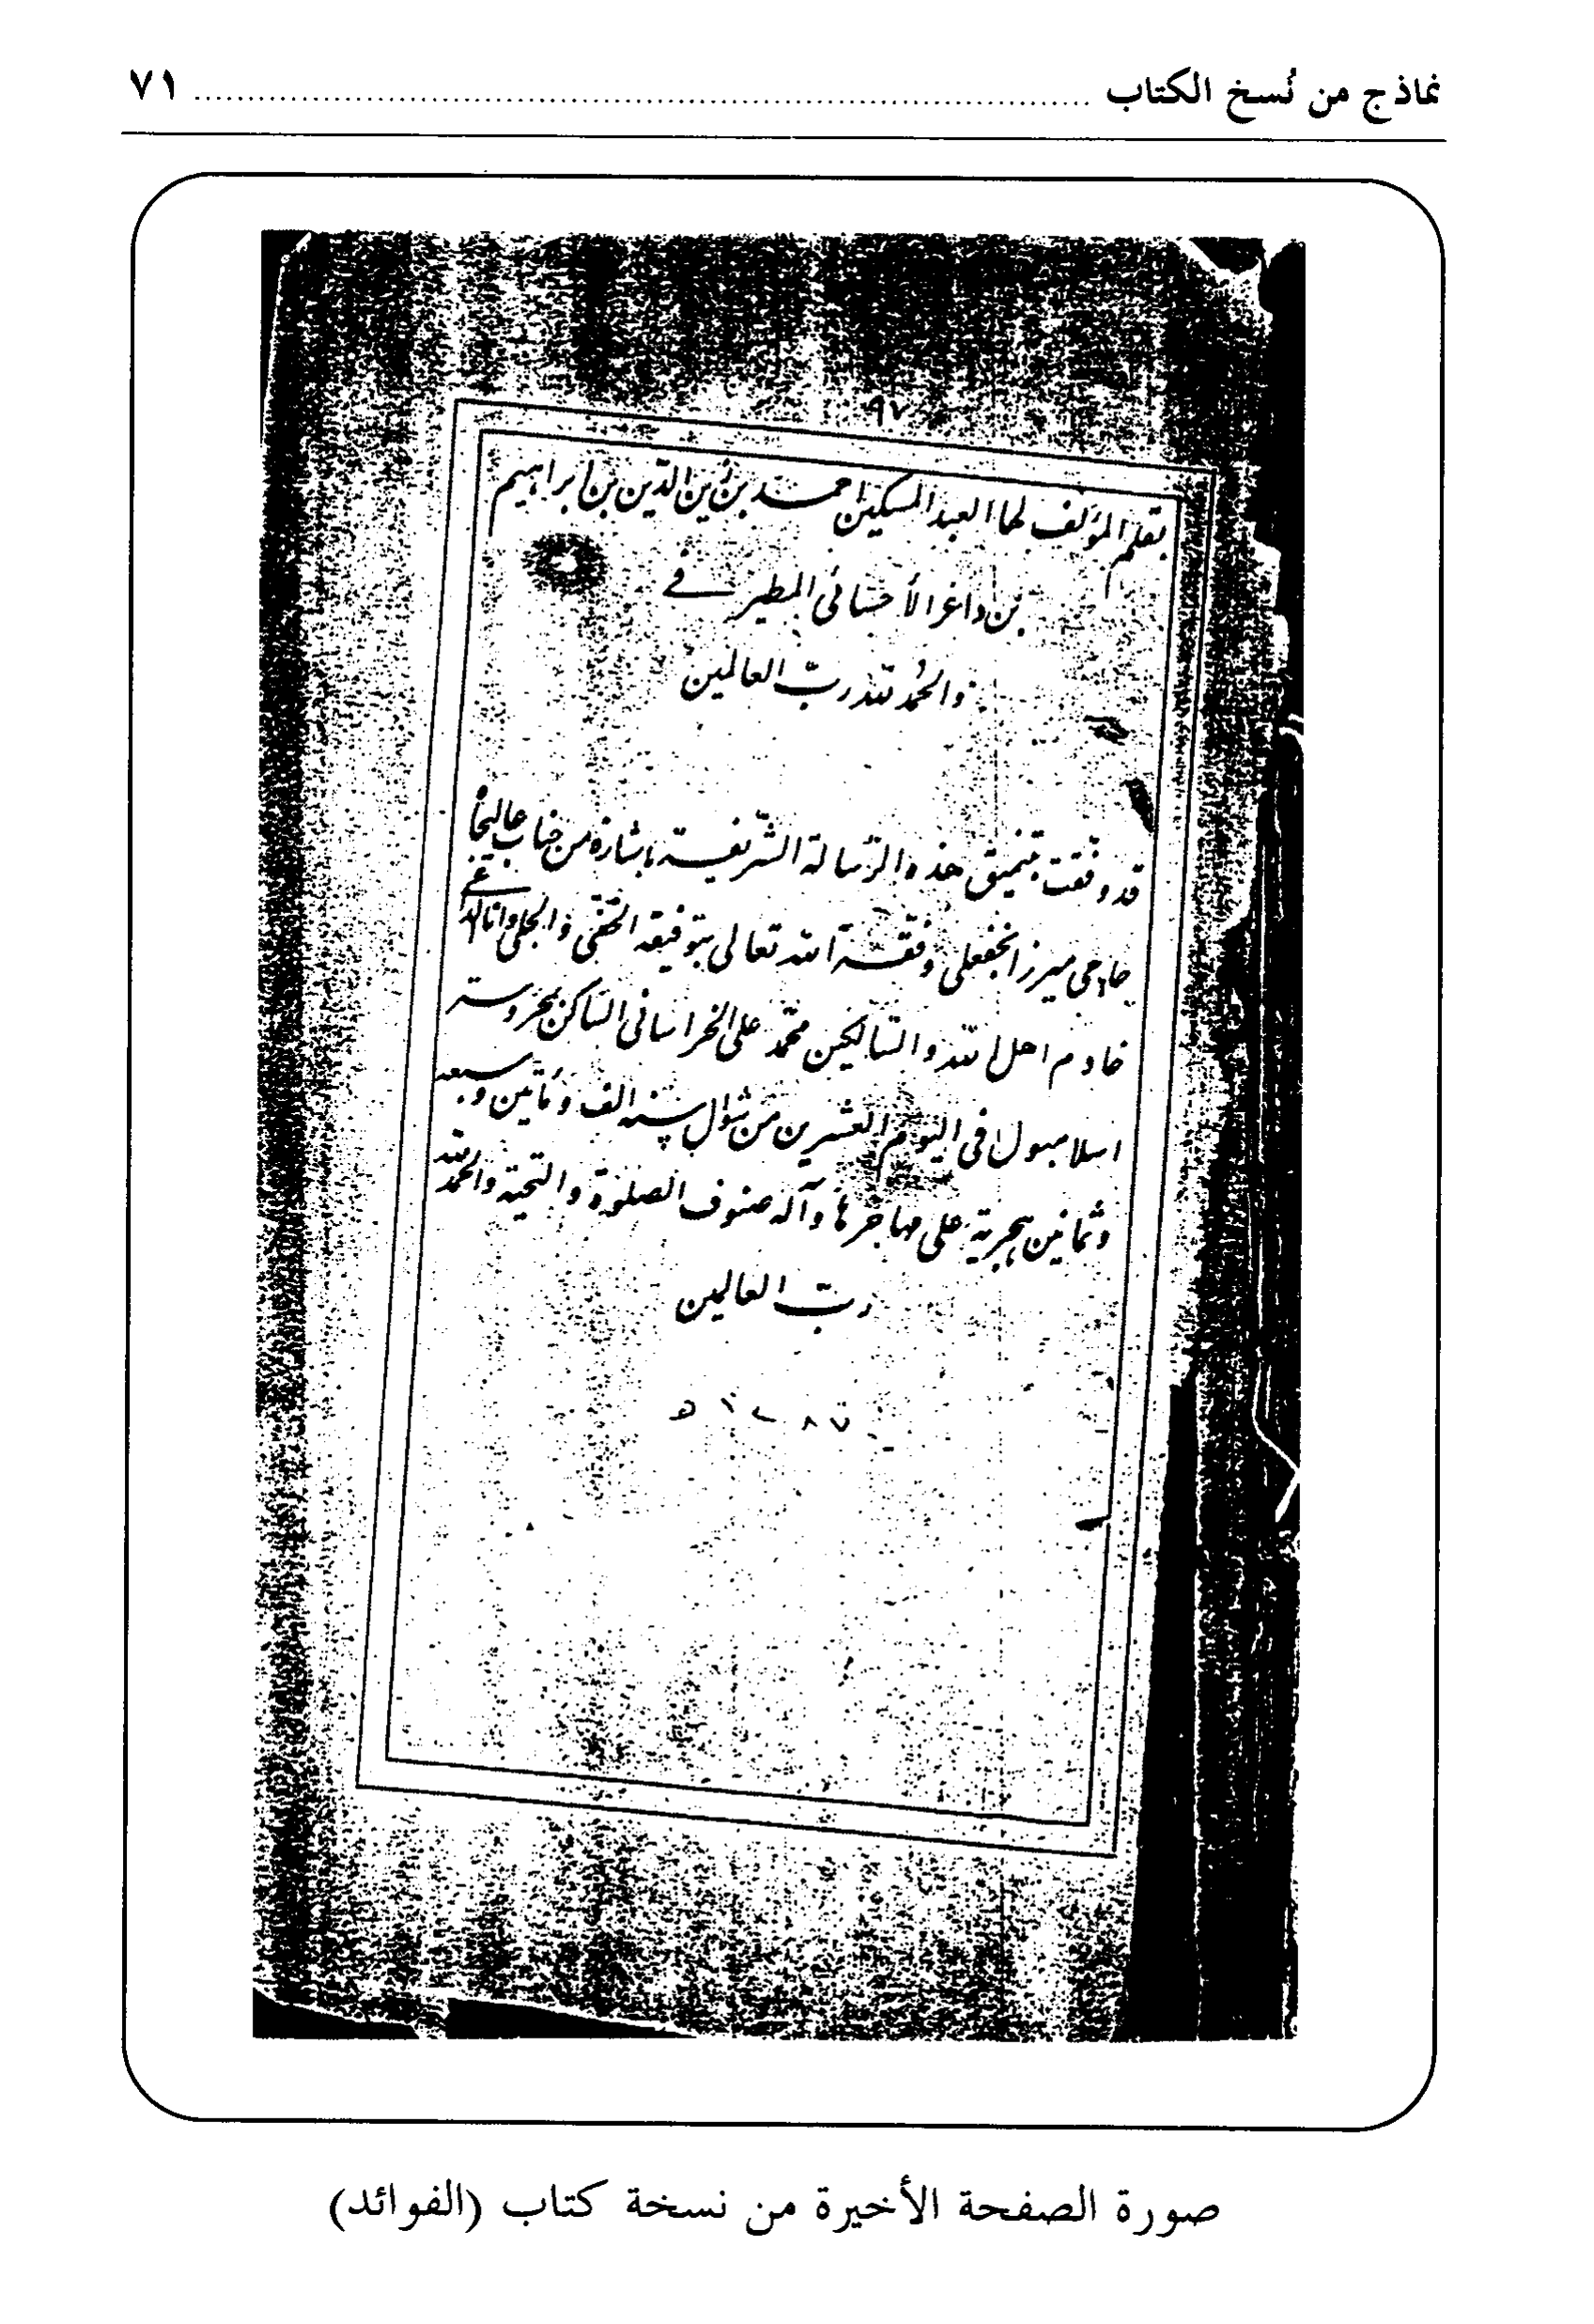 نماذج من نُسخ الكتاب ........ ٧١
٩٧
بقلم المؤلف لها العبد المسكين احمد بن زين الدّين بن ابراهيم
بن داغر الأحسائى المطيرفے
والحمد لله ربّ العالمين
قد وفقت بتنميق هذه الرّسالة الشّريفة باشارة من جناب عاليجا
حاجى ميرزا نجفعلى وفّقه الله تعالى بتوفيقه الخفّى والجلى وانا
خادم اهل الله والسّالكين محمّد على الخراسانى السّاكن بمحروسة
اسلامبول فى اليوم العشرين من شوّال سنه الف ومأتين وسبعه
وثمانين هجرية على مهاجرها وآله صنوف الصلوة والتحية والحمد لله
ربّ العالمين
١٢٨٧ هـ
صورة الصفحة الأخيرة من نسخة كتاب (الفوائد)